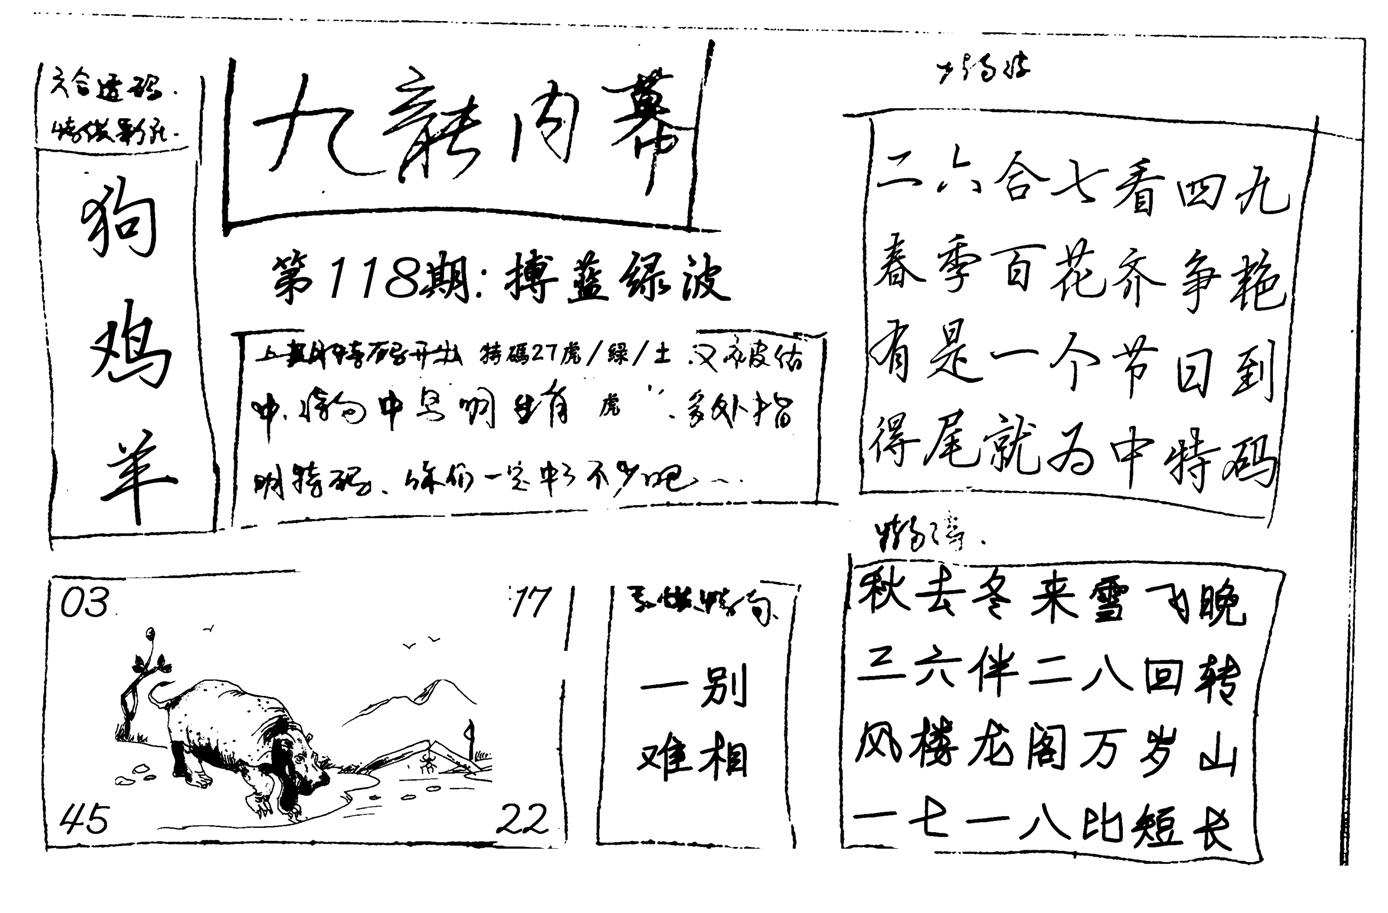 六合透码.
狗
鸡
羊
九龍内幕
第118期:搏蓝绿波
上期特码开出 特碼27虎/緑/土.又被估
中.特句中 明 生肖 虎".多处指
明特码.你们一定中了不少吧…
二六合七看四九
春季百花齐争艳
有是一个节日到
得尾就为中特码
秋去冬来雪飞晚
三六伴二八回转
风楼龙阁万岁山
一七一八比短长
03
17
45
22
一别
难相